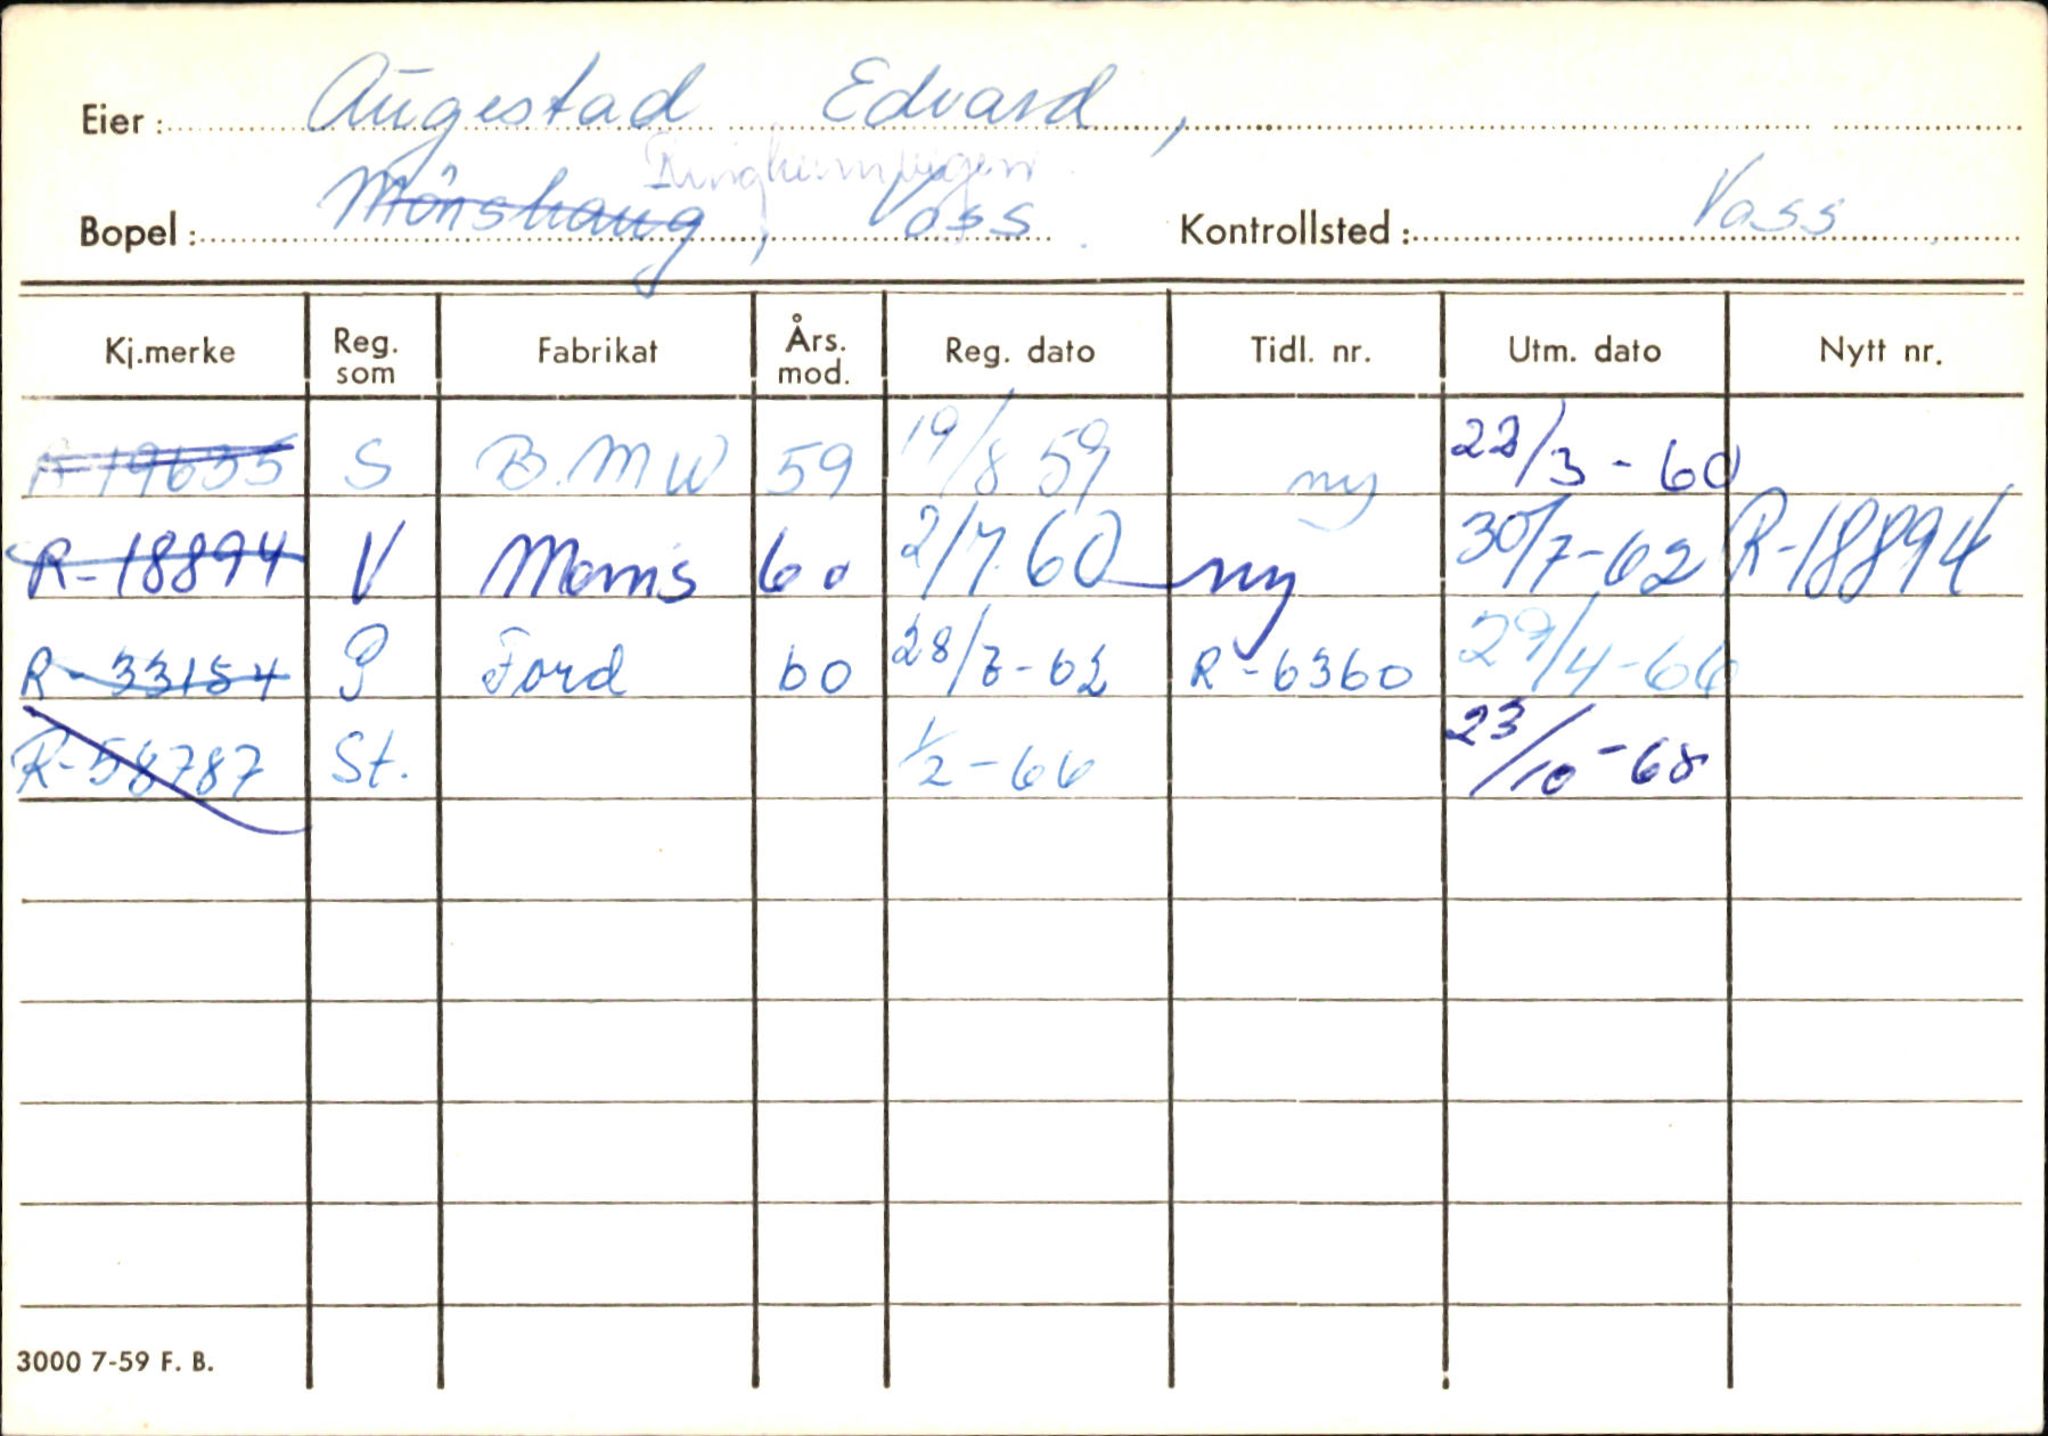 Eier: Augestad Edvard,
Ringheimvegen
Bopel: Mönshaug, Voss Kontrollsted: Voss
Kj.merke Reg. som Fabrikat Års. mod. Reg. dato Tidl. nr. Utm. dato Nytt nr.
R-19635 S B.M.W 59 19/8 59 ny 22/3-60
R-18894 V Morris 60 2/7.60 ny 30/7-62 R-18894
R-33154 P Ford 60 28/7-62 R-6360 29/4-66
R-58787 St. 1/2-66 23/10-68
3000 7-59 F. B.